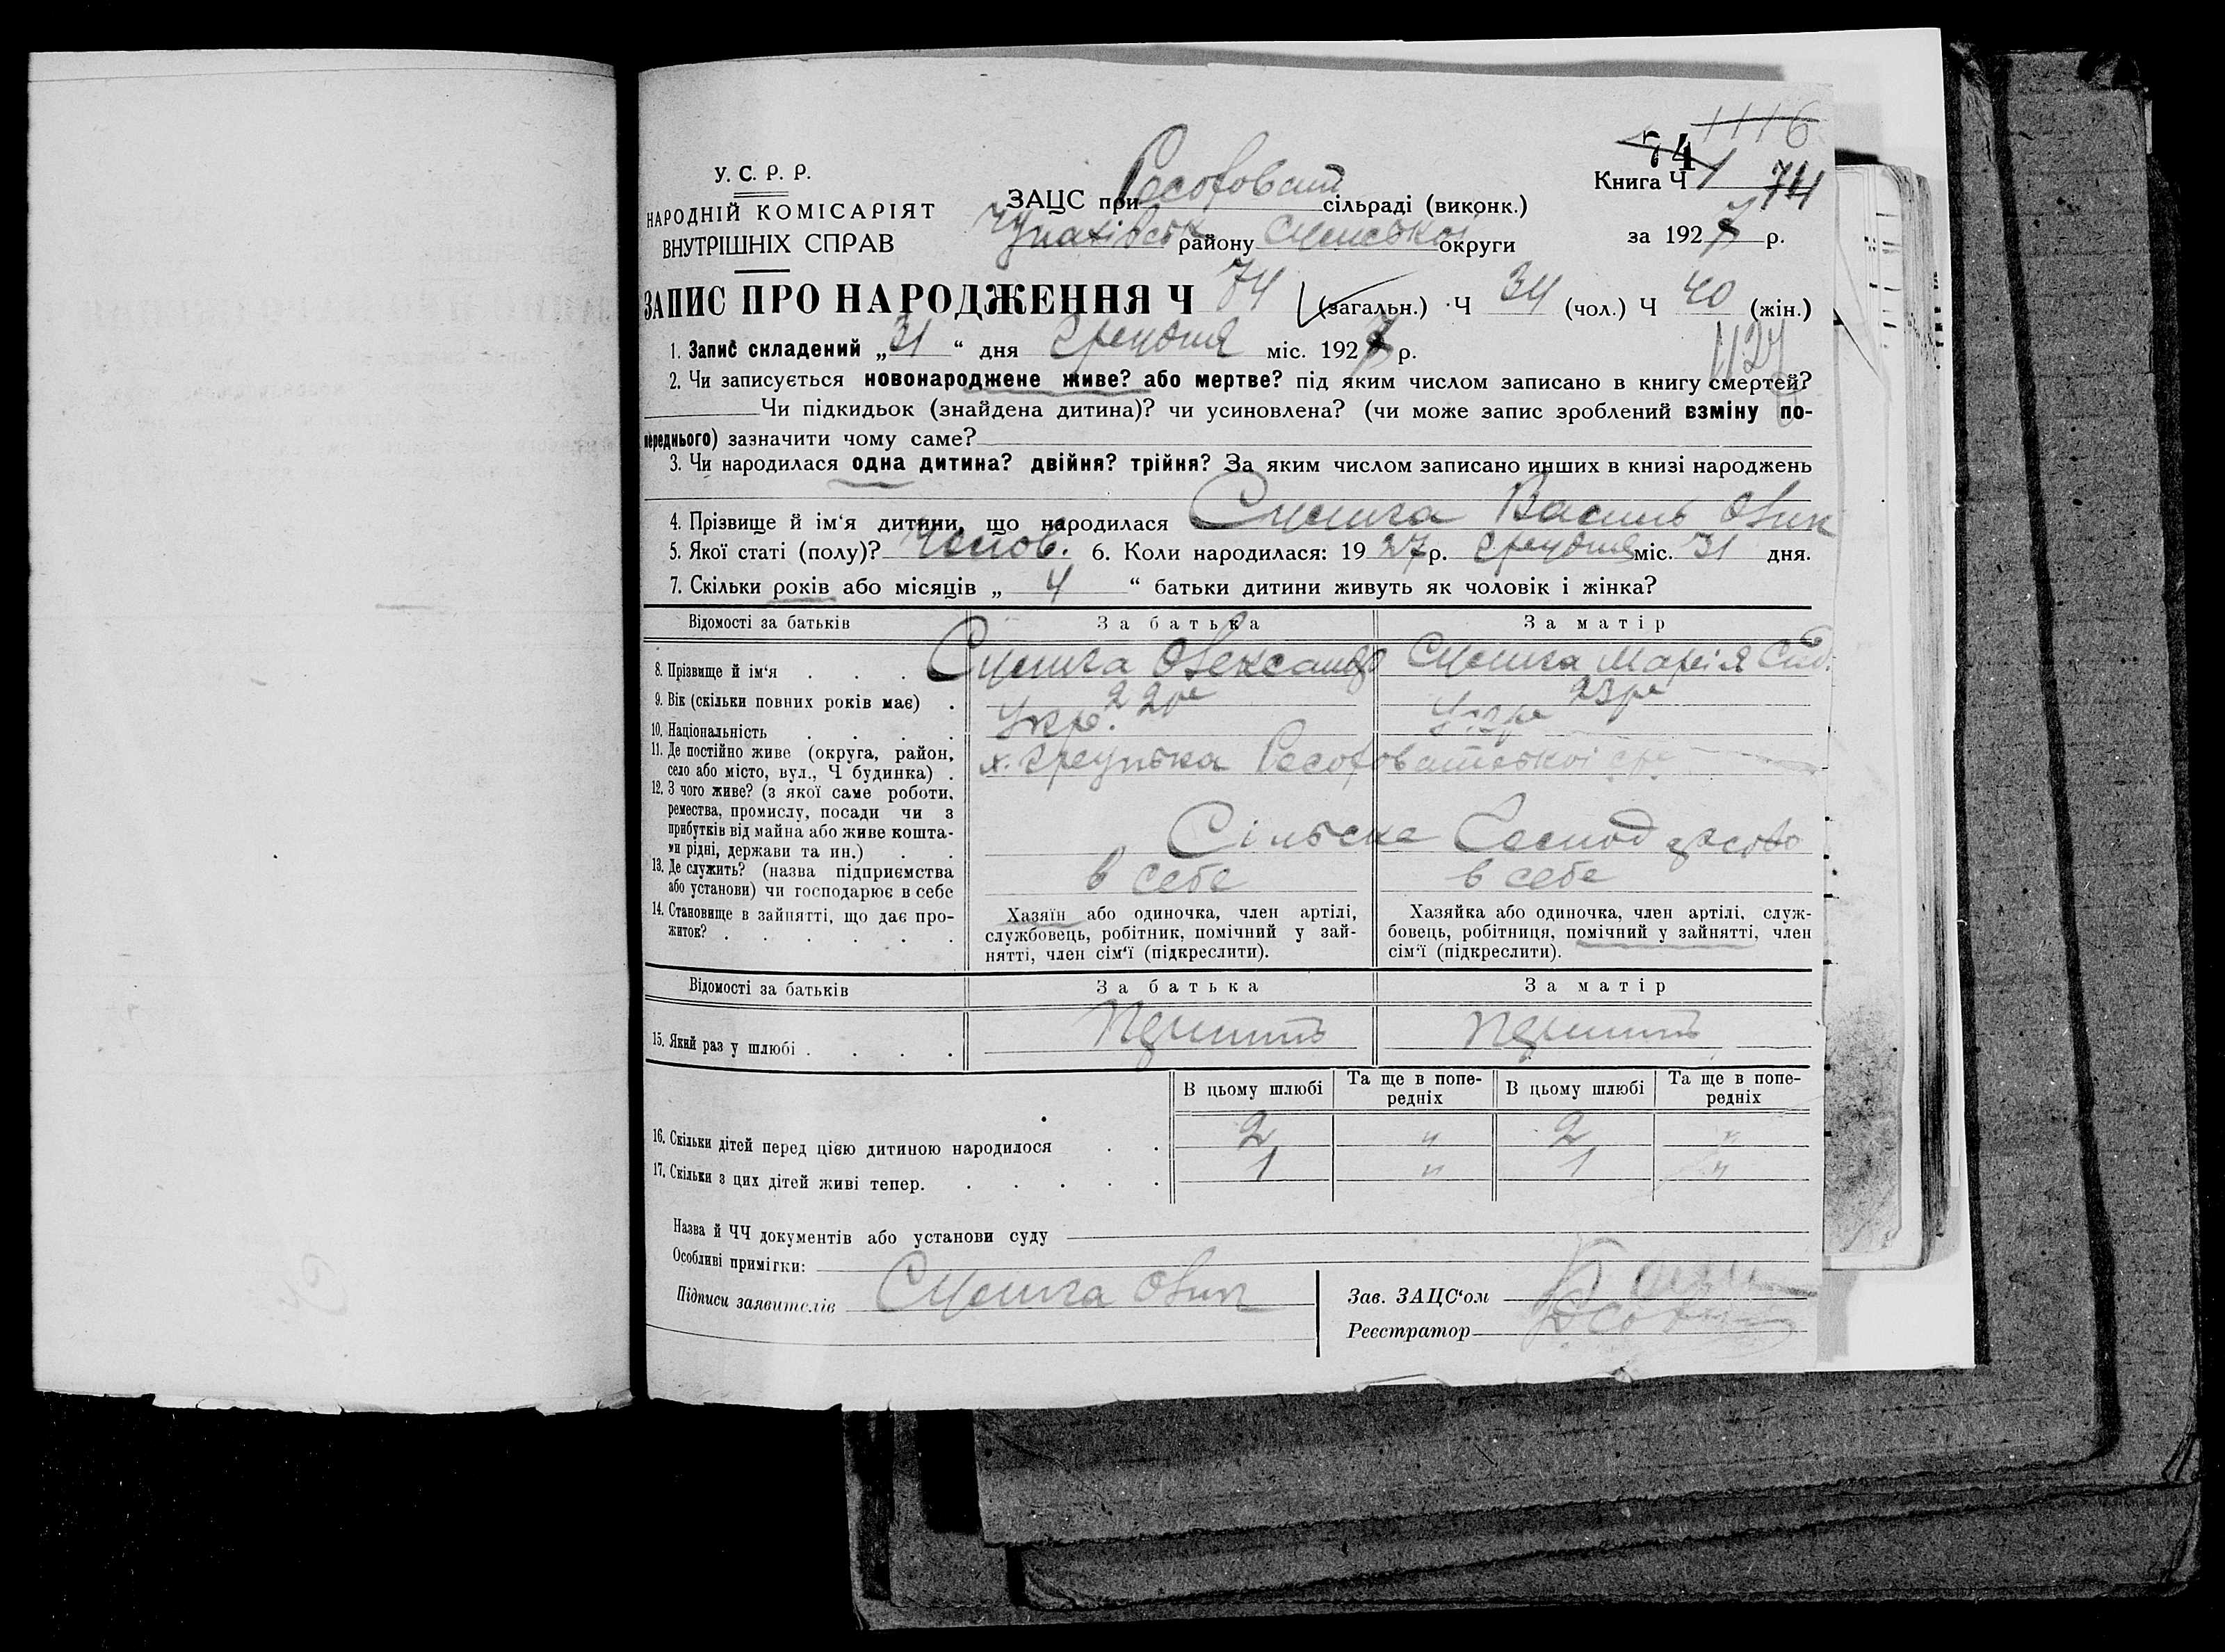 1116
74
У. С. Р. Р.
Книга Ч 1 74
НАРОДНІЙ КОМІСАРІЯТ
ЗАЦС при сільраді (виконк.)
ВНУТРІШНІХ СПРАВ
Чупахівськ району Сумської округи
за 1927 р.
ЗАПИС ПРО НАРОДЖЕННЯ Ч 74 (загальн.) Ч 34 (чол.) Ч 40 (жін.)
1. Запис складений „31“ дня Грудня міс. 1927 р.
1127
2. Чи записується новонароджене живе? або мертве? під яким числом записано в книгу смертей?
Чи підкидьок (знайдена дитина)? чи усиновлена? (чи може запис зроблений взміну по-
переднього) зазначити чому саме?
3. Чи народилася одна дитина? двійня? трійня? За яким числом записано инших в книзі народжень
4. Прізвище й ім‘я дитини, що народилася Василь
5. Якої статі (полу)? Чолов. 6. Коли народилася: 1927 р. Грудня міс. 31 дня.
7. Скільки років або місяців „ 4 “ батьки дитини живуть як чоловік і жінка?
Відомості за батьків За батька За матір
8. Прізвище й ім‘я Олександр Марія
9. Вік (скільки повних років має) 22 р 23 р
10. Національність Укр. Укр
11. Де постійно живе (округа, район,
село або місто, вул., Ч будинка)
12. З чого живе? (з якої саме роботи,
ремества, промислу, посади чи з
прибутків від майна або живе кошта-
ми рідні, держави та ин.) Сільске Господарство
13. Де служить? (назва підприємства
або установи) чи господарює в себе в себе в себе
14. Становище в зайнятті, що дає про-
житок?
Хазяїн або одиночка, член артілі,
службовець, робітник, помічний у зай-
нятті, член сім‘ї (підкреслити).
Хазяйка або одиночка, член артілі, служ-
бовець, робітниця, помічний у зайнятті, член
сім‘ї (підкреслити).
Відомості за батьків За батька За матір
15. Який раз у шлюбі
В цьому шлюбі Та ще в попе-
редніх В цьому шлюбі Та ще в попе-
редніх
16. Скільки дітей перед цією дитиною народилося 2 " 2 "
17. Скільки з цих дітей живі тепер. 1 " 1 "
Назва й ЧЧ документів або установи суду
Особливі примітки:
Підписи заявителів
Зав. ЗАЦС‘ом
Реєстратор